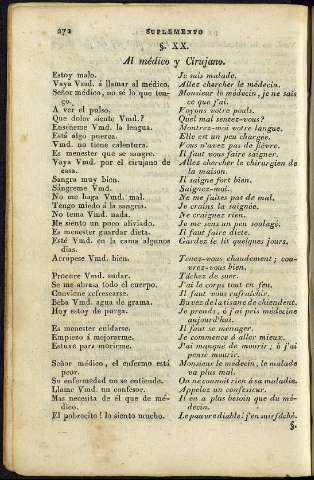 272 SUPLEMENTO
§. XX.
Al médico y Cirujano.
Estoy malo. Je suis malade.
Vaya Vmd. á llamar al médico. Allez chercher le médecin.
Señor médico, no sé lo que ten- Monsieur le médecin, je ne sais
go. ce que j'ai.
A ver el pulso. Voyons votre pouls.
Que dolor siente Vmd.? Quel mal sentez-vous?
Enséñeme Vmd. la lengua. Montrez-moi votre langue.
Está algo puerca. Elle est un peu chargée.
Vmd. no tiene calentura. Vous n'avez pas de fièvre.
Es menester que se sangre. Il faut vous faire saigner.
Vaya Vmd. por el cirujano de Allez chercher le chirurgien de
casa. la maison.
Sangra muy bien. Il saigne fort bien.
Sángreme Vmd. Saignez-moi.
No me haga Vmd. mal. Ne me faites pas de mal.
Tengo miedo á la sangría. Je crains la saignée.
No tema Vmd. nada. Ne craignez rien.
Me siento un poco aliviado. Je me sens un peu soulagé.
Es menester guardar dieta. Il faut faire diète.
Esté Vmd. en la cama algunos Gardez le lit quelques jours.
dias.
Arropese Vmd. bien. Tenez-vous chaudement; cou-
vrez-vous bien.
Procure Vmd. sudar. Tâchez de suer.
Se me abrasa todo el cuerpo. J'ai le corps tout en feu.
Conviene refrescarse. Il faut vous rafraîchir.
Beba Vmd. agua de grama. Buvez de la tisane de chiendent.
Hoy estoy de purga. Je prends, ó j'ai pris médecine
aujourd'hui.
Es menester cuidarse. Il faut se ménager.
Empiezo á mejorarme. Je commence á aller mieux.
Estuve para morirme. J'ai manque de mourir; ó j'ai
pensé mourir.
Señor médico, el enfermo está Monsieur le médecin; le malade
peor. va plus mal.
Su enfermedad no se entiende. On ne connoît rien á sa maladie.
Llame Vmd. un confesor. Appelez un confesseur.
Mas necesita de él que de mé- Il en a plus besoin que du mé-
dico. decin.
El pobrecito! lo siento mucho. Le pauvre diable! j'en suis fâché.
§.